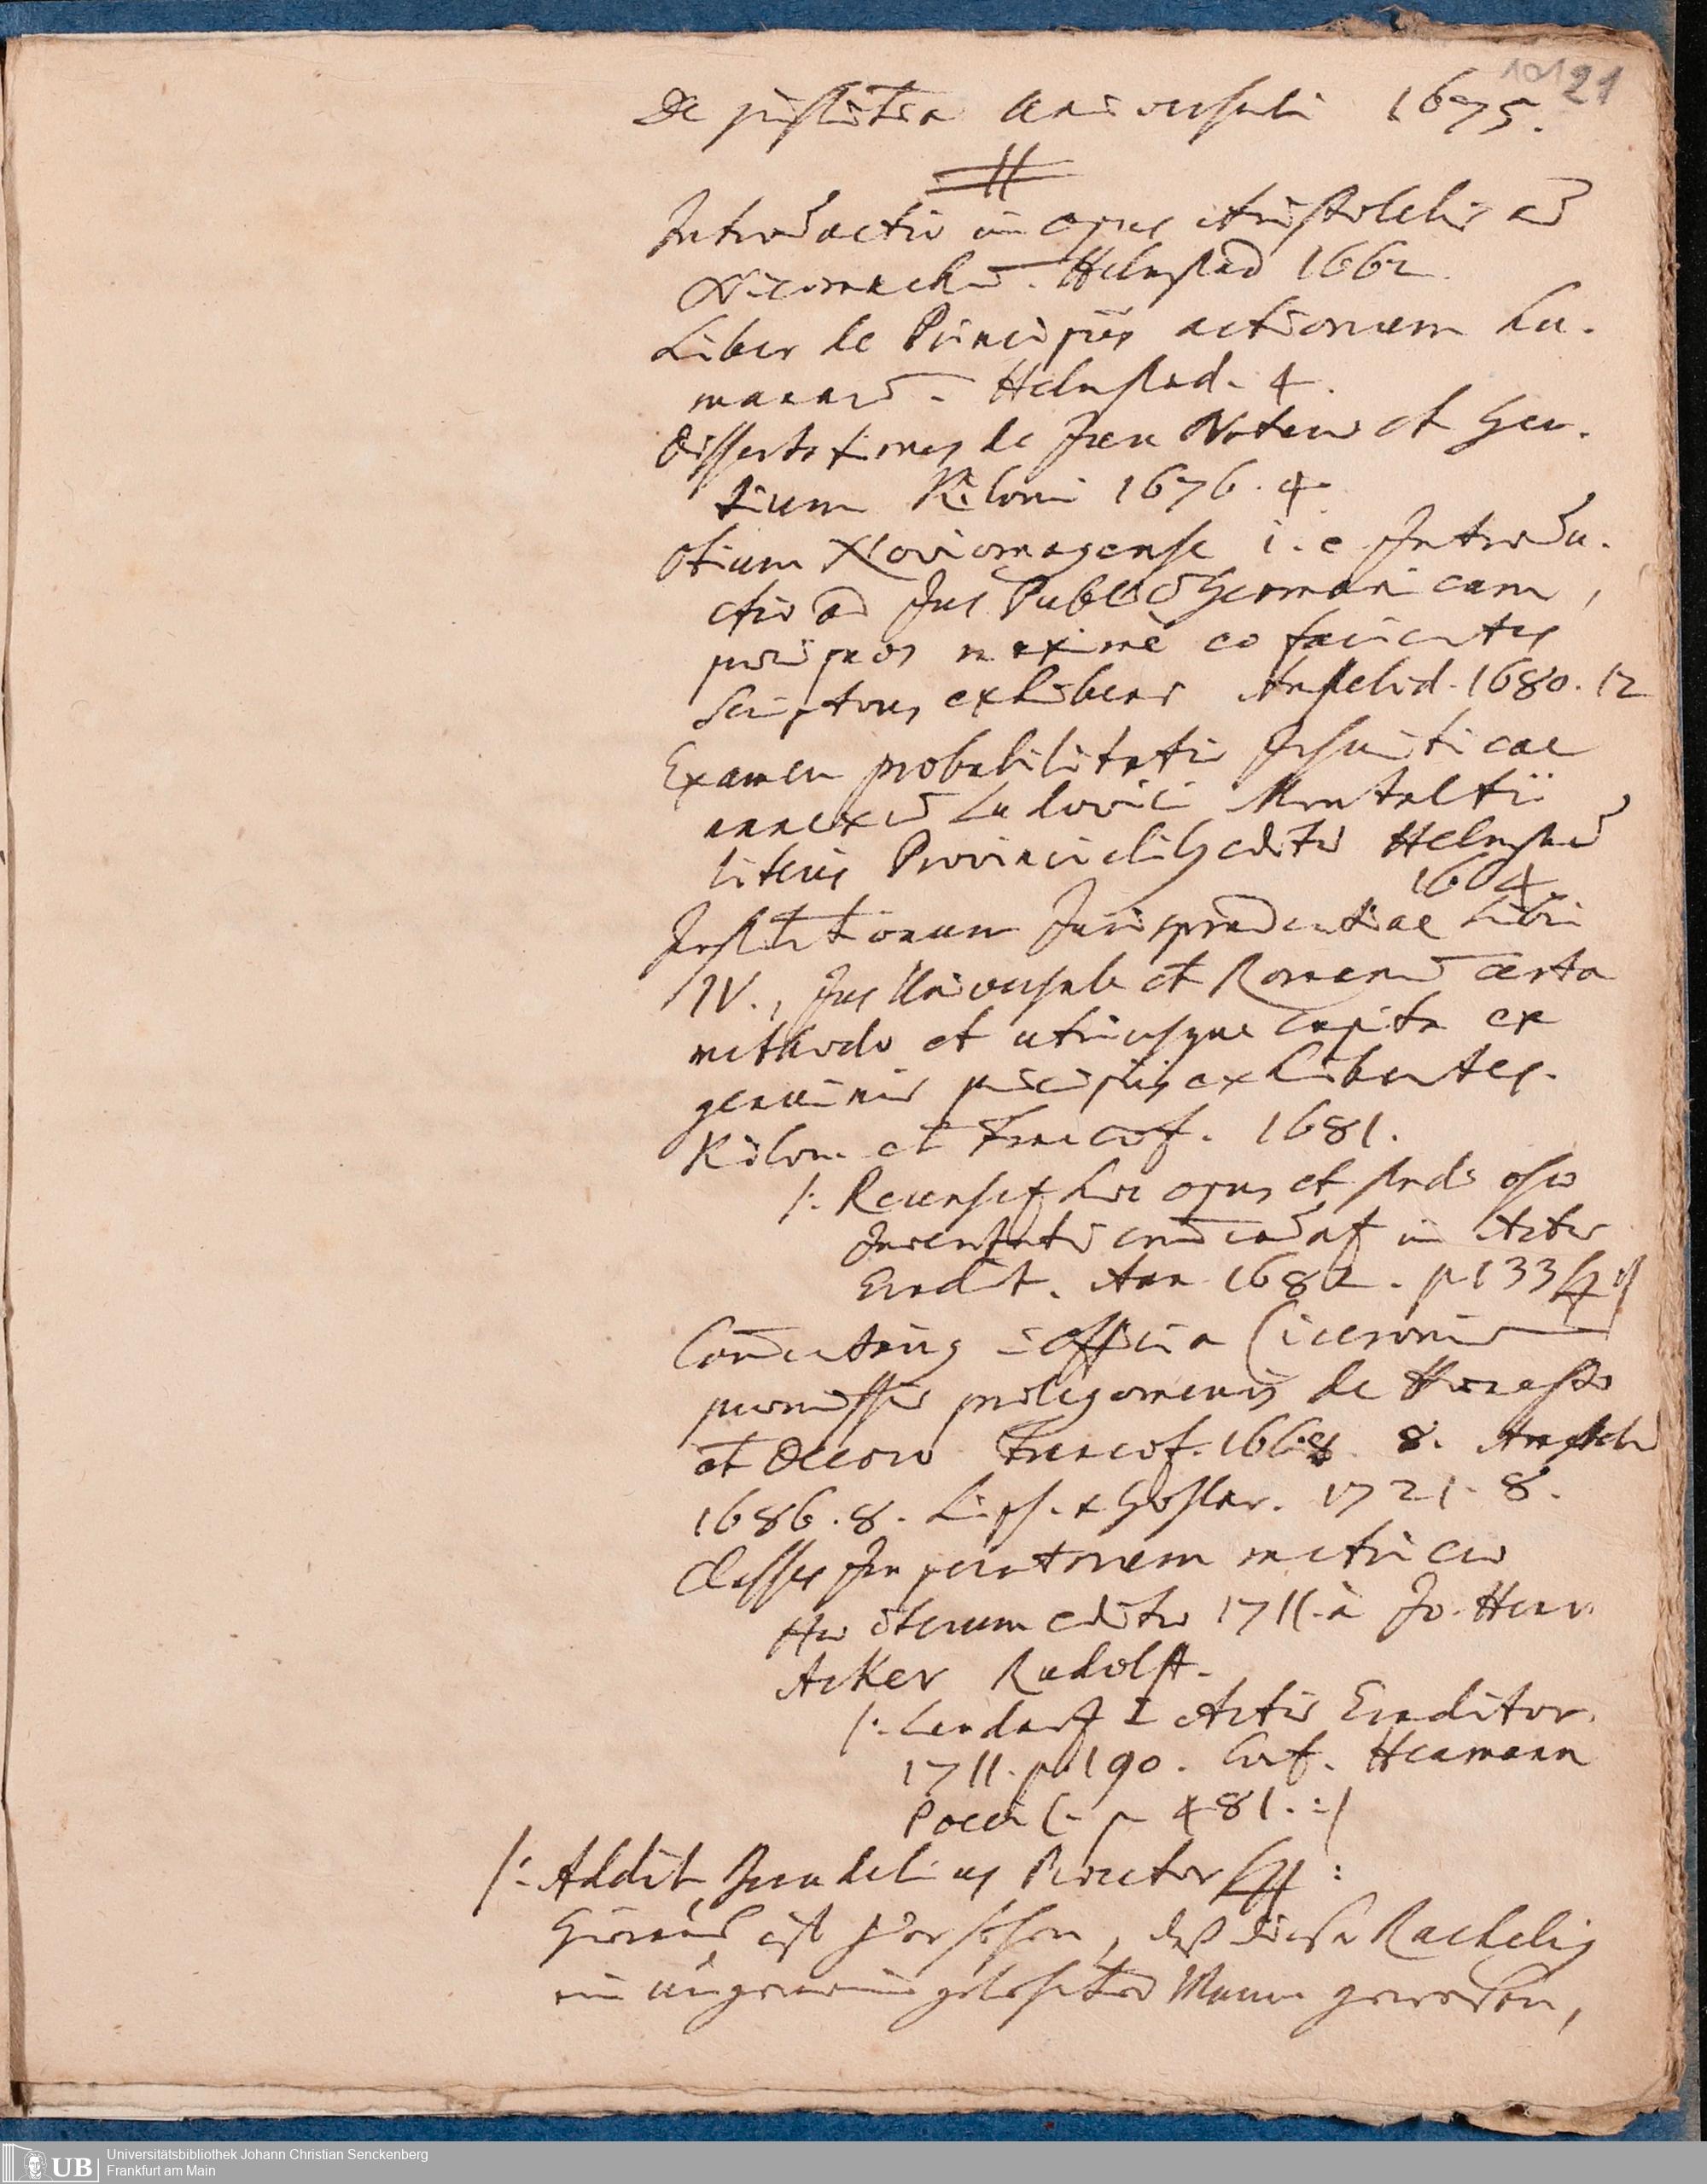 101 21
De justitia universali 1675.
Introductio in opus Aristotelis ad
Nicomachū. Helmstad 1662
Liber de Principiis actionum hu-
manarū. Helmstad. 4.
Dissertationes de Jure Naturae et Gen-
tium Kiloni 1676. 4
Otium Noviomagense i. e. Introdu-
ctio ad Jus Publicū Germanicum,
maximè eo facientes
Scriptores exhibens Amstelod. 1680. 12
Examen probabilitatis Jesuiticae
annexū Ludovici Montaltii
literis Provincialib editū Helmstad
1664.
Institutionum Jurisprudentiae Libri
IV., Jus Universale et Romanū certa
methodo et utriusque capita ex
genuinis principiis exhibentes.
Kilon. et Francof. 1681.
/: Recenset hoc opus et
Juventuti in Actis
Erudit. Ann 1682. p 133 sq :/
Comentarius Officia Ciceronis
praemissis prolegomenis de Honesto
et Decoro Francof. 1668. 8. Amstelod
1686. 8. Lips. & Goslar. 1721. 8.
Classes Imperatorum metricae
iterum editae 1711. à Jo. Henr.
Acker Rudolst.
/: Actis Eruditor.
1711. p. 190. Conf. Heumann
Poecil. p 481. :/
/: Addit Rector :
Hieraus ist zu ersehen, daß dieser Rachelius
ein ungemein gelehrter Mann gewesen,
UB Universitätsbibliothek Johann Christian Senckenberg
Frankfurt am Main